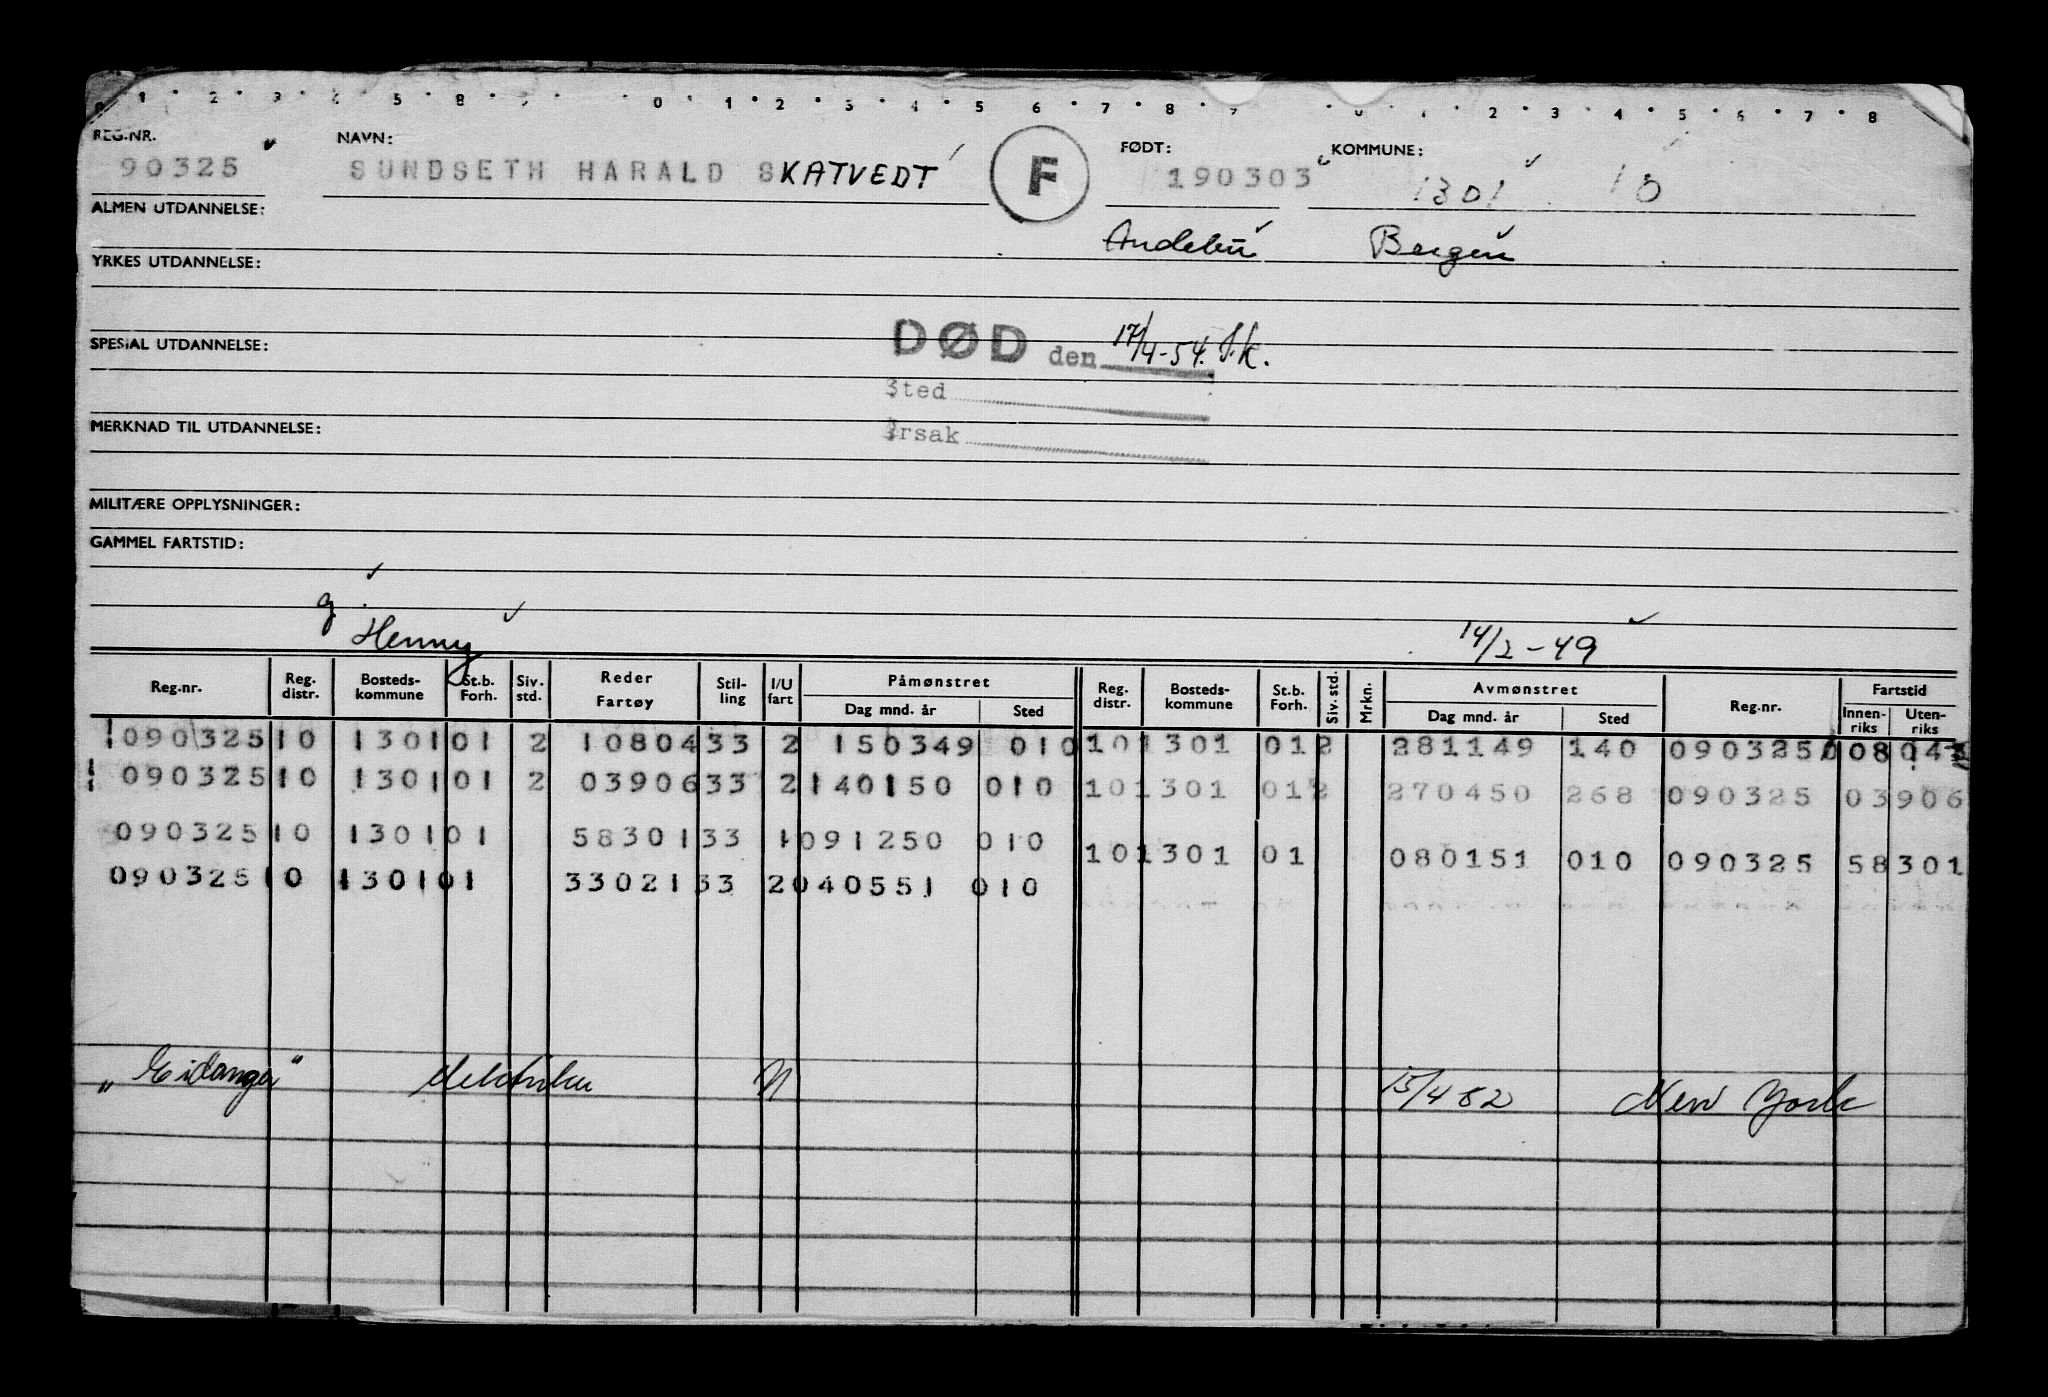 1 · 2 · 3 · 4 · 5 · 8 · 0 · 1 · 2 · 3 · 4 · 5 · 6 · 7 · 8 · 9 · 0 · 1 · 2 · 3 · 4 · 5 · 6 · 7 · 8
REG.NR. NAVN: FØDT: KOMMUNE:
90325 SUNDSETH HARALD SKATVEDT F 190303 1301 10
ALMEN UTDANNELSE:
Andebu Bergen
YRKES UTDANNELSE:
SPESIAL UTDANNELSE: DØD den 17/4-54. S.k.
Sted
Årsak
MERKNAD TIL UTDANNELSE:
MILITÆRE OPPLYSNINGER:
GAMMEL FARTSTID:
g. Henny 14/2-49
Reg.nr. Reg. distr. Bosteds-kommune St.b. Forh. Siv. std. Reder Fartøy Stil-ling I/U fart Påmønstret Dag mnd. år Sted Reg. distr. Bosteds-kommune St.b. Forh. Siv. std. Mrkn. Avmønstret Dag mnd. år Sted Reg.nr. Fartstid Innen-riks Uten-riks
090325 10 1301 01 2 10804 33 2 150349 010 10 1301 01 2 281149 140 090325 08 04
090325 10 1301 01 2 03906 33 2 140150 010 10 1301 01 2 270450 268 090325 03906
090325 10 1301 01 58301 33 1 091250 010 10 1301 01 080151 010 090325 58301
090325 10 1301 01 33021 33 2 040551 010
"Eidanger" elektriker N 15/4 52 New York